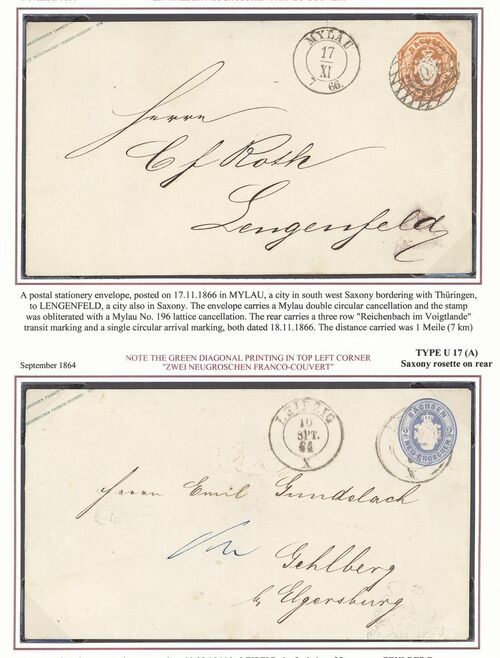 NEUGROSCHEN FRANCO-COUVERT
MYLAU
17
XI
7 66.
SACHSEN
Herrn
C f Roth
Lengenfeld
A postal stationery envelope, posted on 17.11.1866 in MYLAU, a city in south west Saxony bordering with Thüringen,
to LENGENFELD, a city also in Saxony. The envelope carries a Mylau double circular cancellation and the stamp
was obliterated with a Mylau No. 196 lattice cancellation. The rear carries a three row "Reichenbach im Voigtlande"
transit marking and a single circular arrival marking, both dated 18.11.1866. The distance carried was 1 Meile (7 km)
September 1864
NOTE THE GREEN DIAGONAL PRINTING IN TOP LEFT CORNER
"ZWEI NEUGROSCHEN FRANCO-COUVERT"
TYPE U 17 (A)
Saxony rosette on rear
NEUGROSCHEN FRANCO-COUVERT
LEIPZIG
16
SPT.
64
X
SACHSEN
NEU-GROSCHEN
X
Herrn Emil Gundelach
Gehlberg
b/ Elgersburg